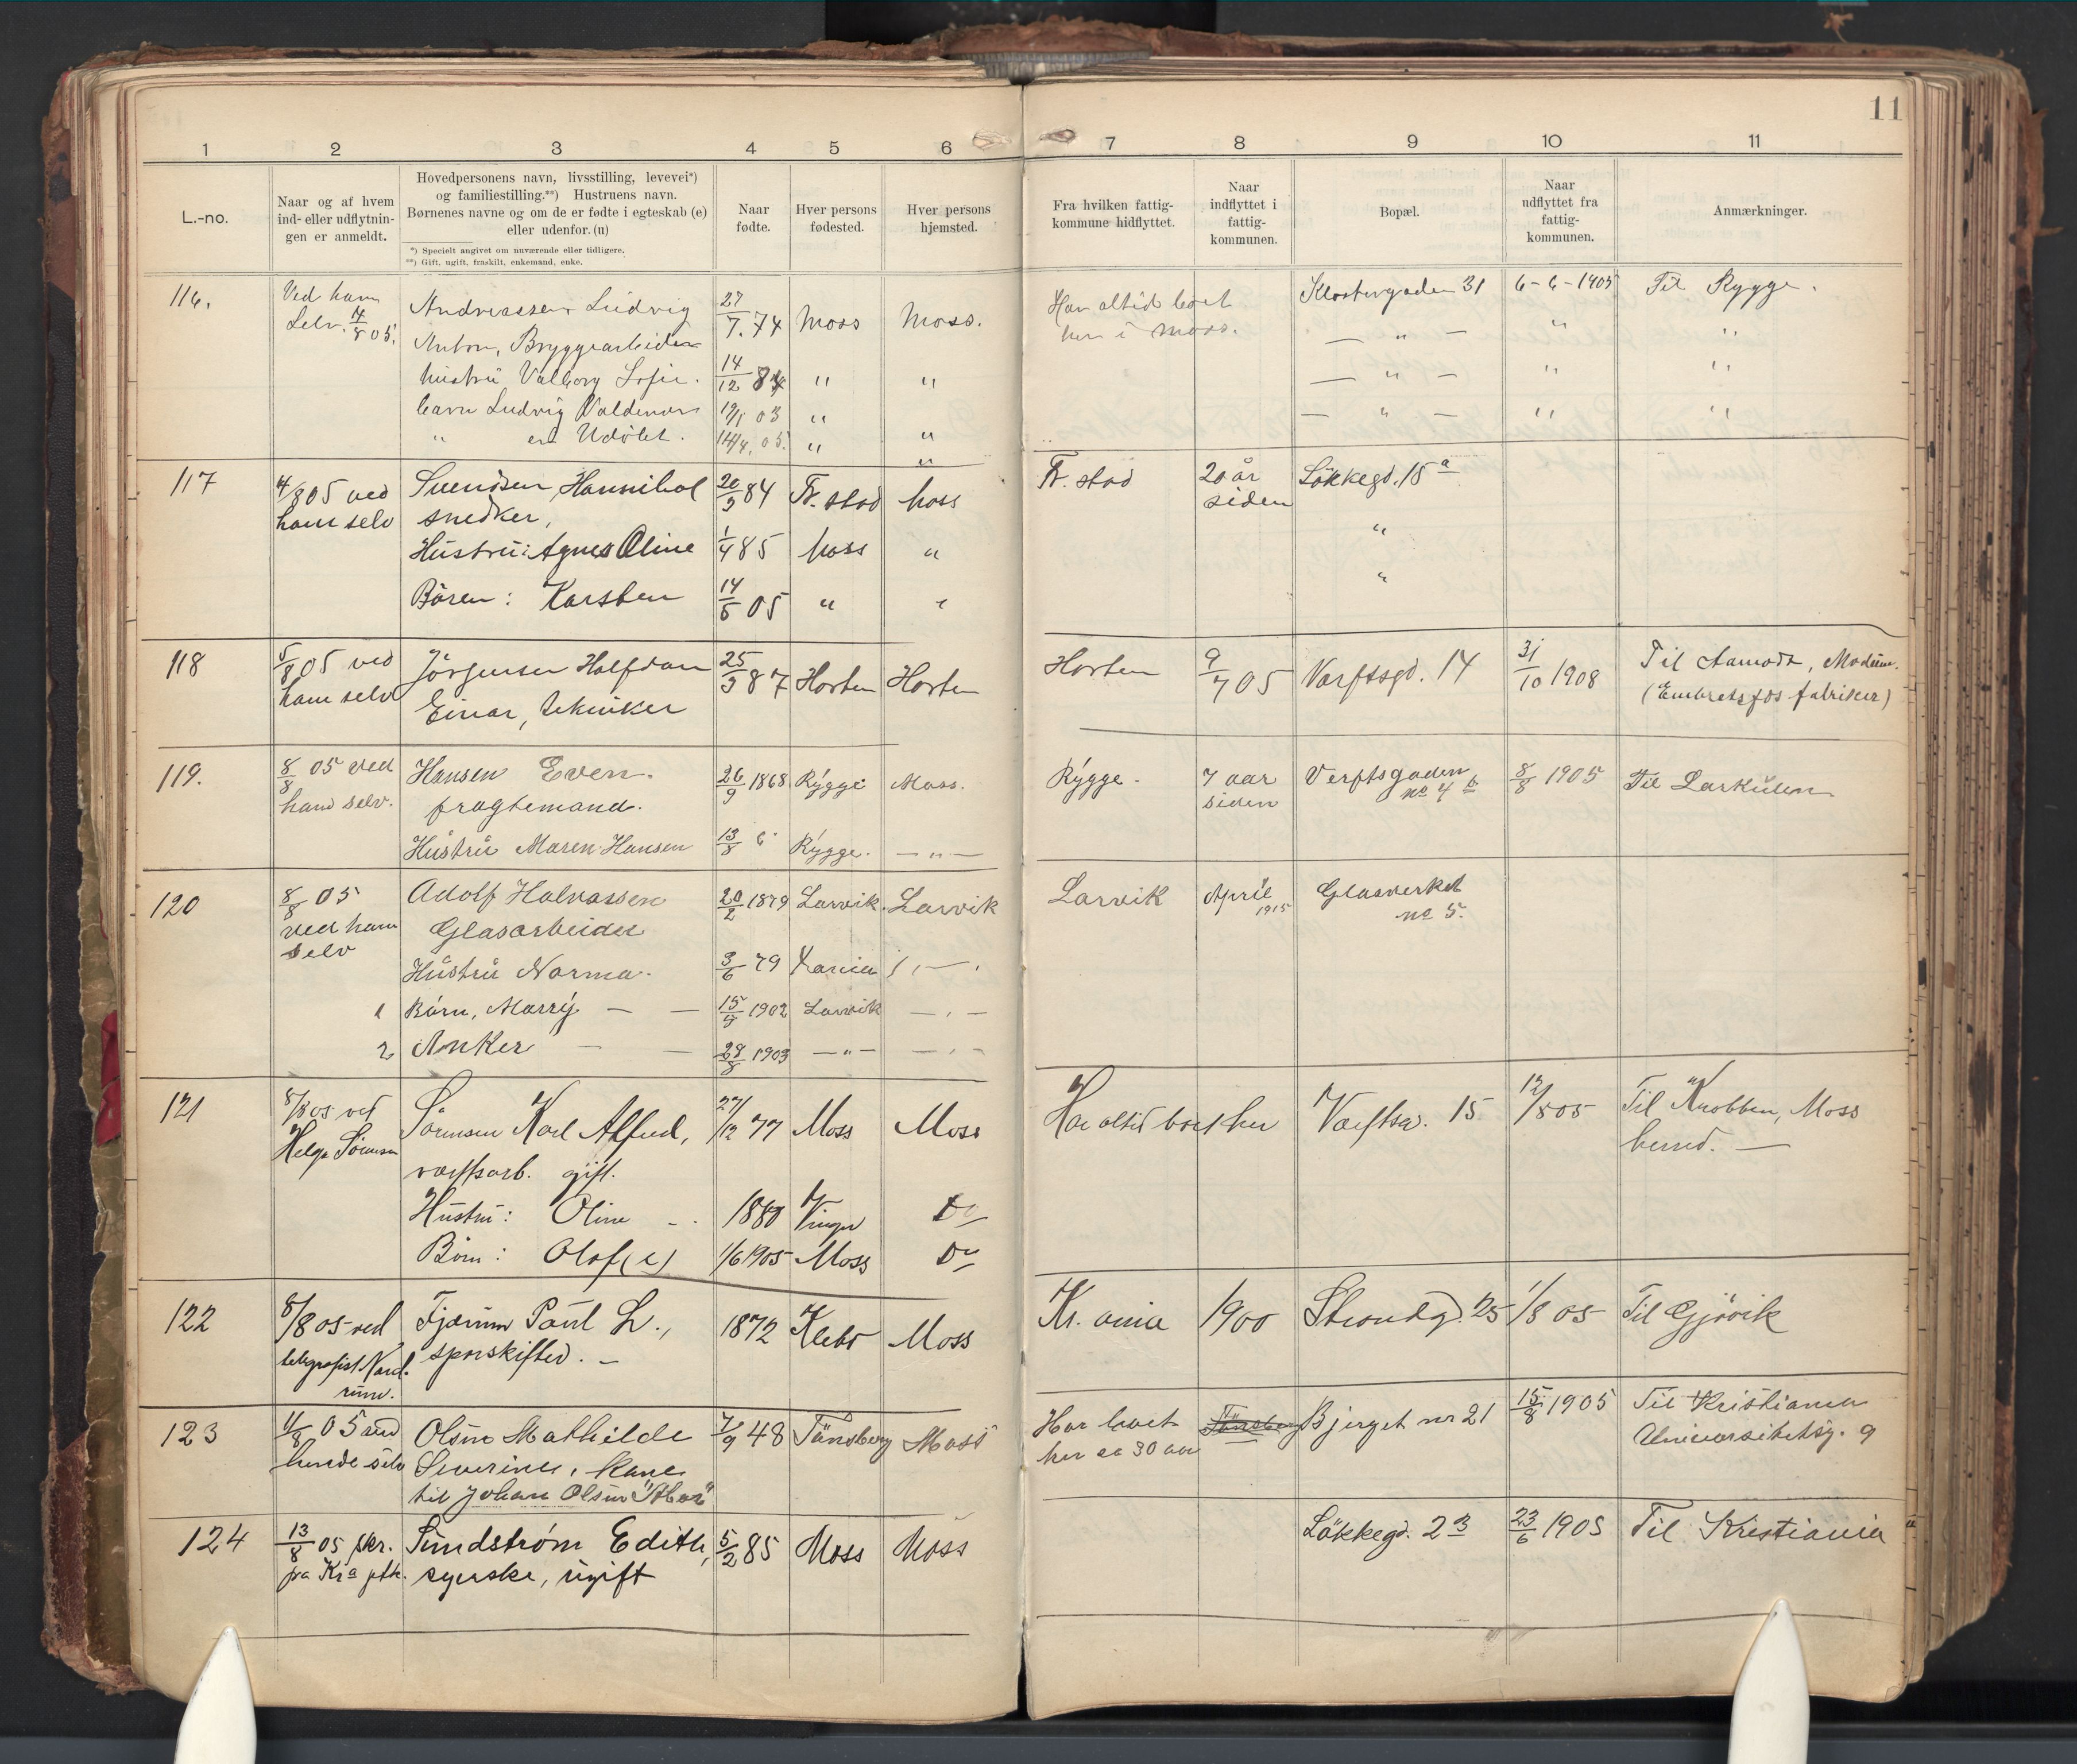 11
1 2 3 4 5 6 7 8 9 10 11
L.-no.
Naar og af hvem
ind- eller udflytnin-
gen er anmeldt.
Hovedpersonens navn, livsstilling, levevei*)
og familiestilling.**) Hustruens navn.
Børnenes navne og om de er fødte i egteskab (e)
eller udenfor. (u)
*) Specielt angivet om nuværende eller tidligere.
**) Gift, ugift, fraskilt, enkemand, enke.
Naar
fødte.
Hver persons
fødested.
Hver persons
hjemsted.
Fra hvilken fattig-
kommune hidflyttet.
Naar
indflyttet i
fattig-
kommunen.
Bopæl.
Naar
udflyttet fra
fattig-
kommunen.
Anmærkninger.
116. Ved ham Andreassen Ludvig 27/7.74 Moss Moss. Har altid boet Klostergaden 31 6-6-1905 Til Rygge.
Selv. 4/8 05. Anton, Bryggearbeider her i Moss. — " — " "
hustru Valborg Sofie. 14/12 84 " " — " — " "
barn Ludvig Valdemar 19/1 03 " " — " — " "
" en Udøbt. 14/4, 05. " "
117 4/8 05 ved Svendsen, Hannibal 20/3 84 Fr. stad Moss Fr. stad 20 år Løkkegd. 15 a
ham selv snedker, siden "
Hustru: Agnes Oline 1/4 85 Moss " "
Børen: Karsten 14/5 05 " "
118 5/8 05 ved Jørgensen Halfdan 25/3 87 Horten Horten Horten 9/7 05 Varftsgd. 14 31/10 1908 Til Aamodt, Modum.
ham selv Einar, tekniker (Embretsfos fabriker)
119. 8/8 05 ved Hansen Even. 26/9 1868 Rygge Moss. Rygge. 7 aar Verftsgaden 8/8 1905 Til Larkulen
ham selv. fragtemand. siden no 4 b
Hustru Maren Hansen 13/8 Rygge. — " —
120 8/8 05 Adolf Halvassen 20/2 1879 Larvik. Larvik Larvik April Glasverket
ved ham Glasarbeider 1915 no 5.
selv
Hustru Norma. 3/6 79 Kania
1 Børn, Marry — — 15/9 1902 Larvik — " —
2 Anker — — 28/8 1903 — " — — " —
121 8/8 05 ved Sørensen Karl Alfred, 27/12 77 Moss Moss Har altid boet her Varftsg. 15 12/8 05 Til Knobben, Moss
Helga Sørensen varftsarb. gift. herred. —
Hustru: Oline — 1880 Vinger Do
Børn: Olaf (e) 1/6 1905 Moss Do
122 8/8 05 ved Fjærum Paul L., 1872 Klebo Moss Kr. ania 1900 Strandg. 25 1/8 05 Til Gjøvik
telegrafist Nord- sporskifter. —
rum.
123 11/8 05 ved Olsen Mathilde 7/9 48 Tønsberg Moss Har boet Tønsberg Bjerget nr 21 15/8 1905 Til Kristiania
hende selv Severine, kone her ca 30 aar Universitetsg. 9
til Johan Olsen
124 13/8 05 skr. Sundstrøm Edith, 5/2 85 Moss Moss Løkkegd. 23 23/6 1905 Til Kristiania
fra Kra ptk. syerske, ugift